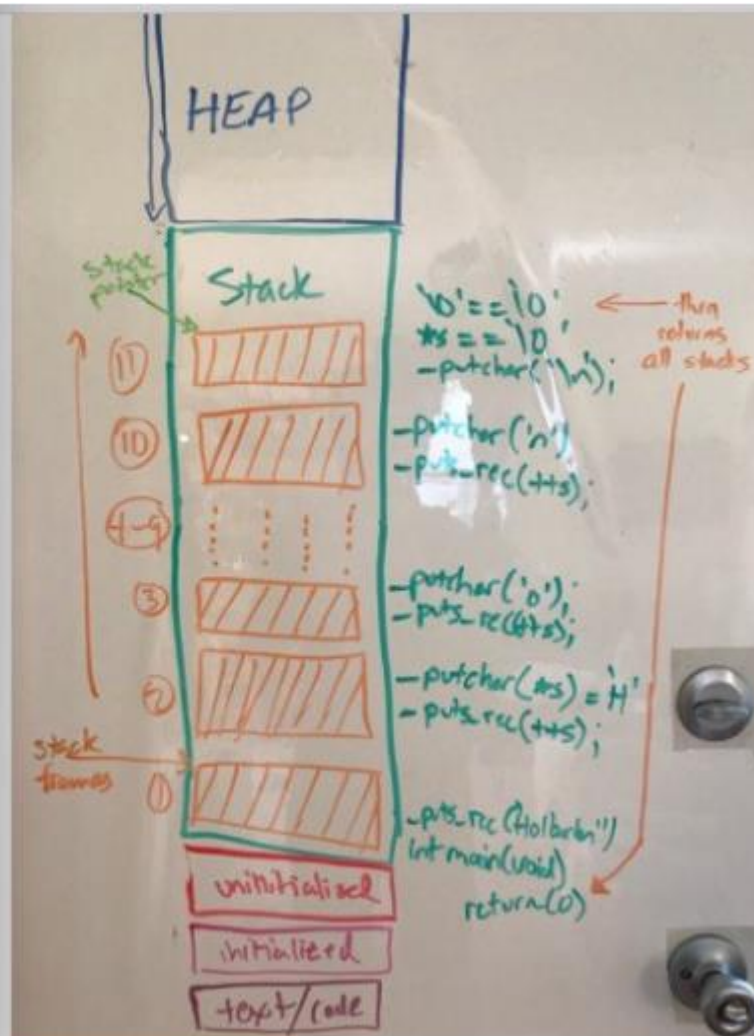 HEAP
stack
pointer
Stack
'\0' == '\0'
*s == '\0'
-putchar('\n');
then
returns
all stacks
11
10
-putchar('n')
-puts_rec(++s);
4-9
3
-putchar('o');
-puts_rec(++s);
2
-putchar(*s) = 'H'
-puts_rec(++s);
stack
frames
1
-puts_rec(
int main(void)
return(0)
uninitialized
initialized
text/code